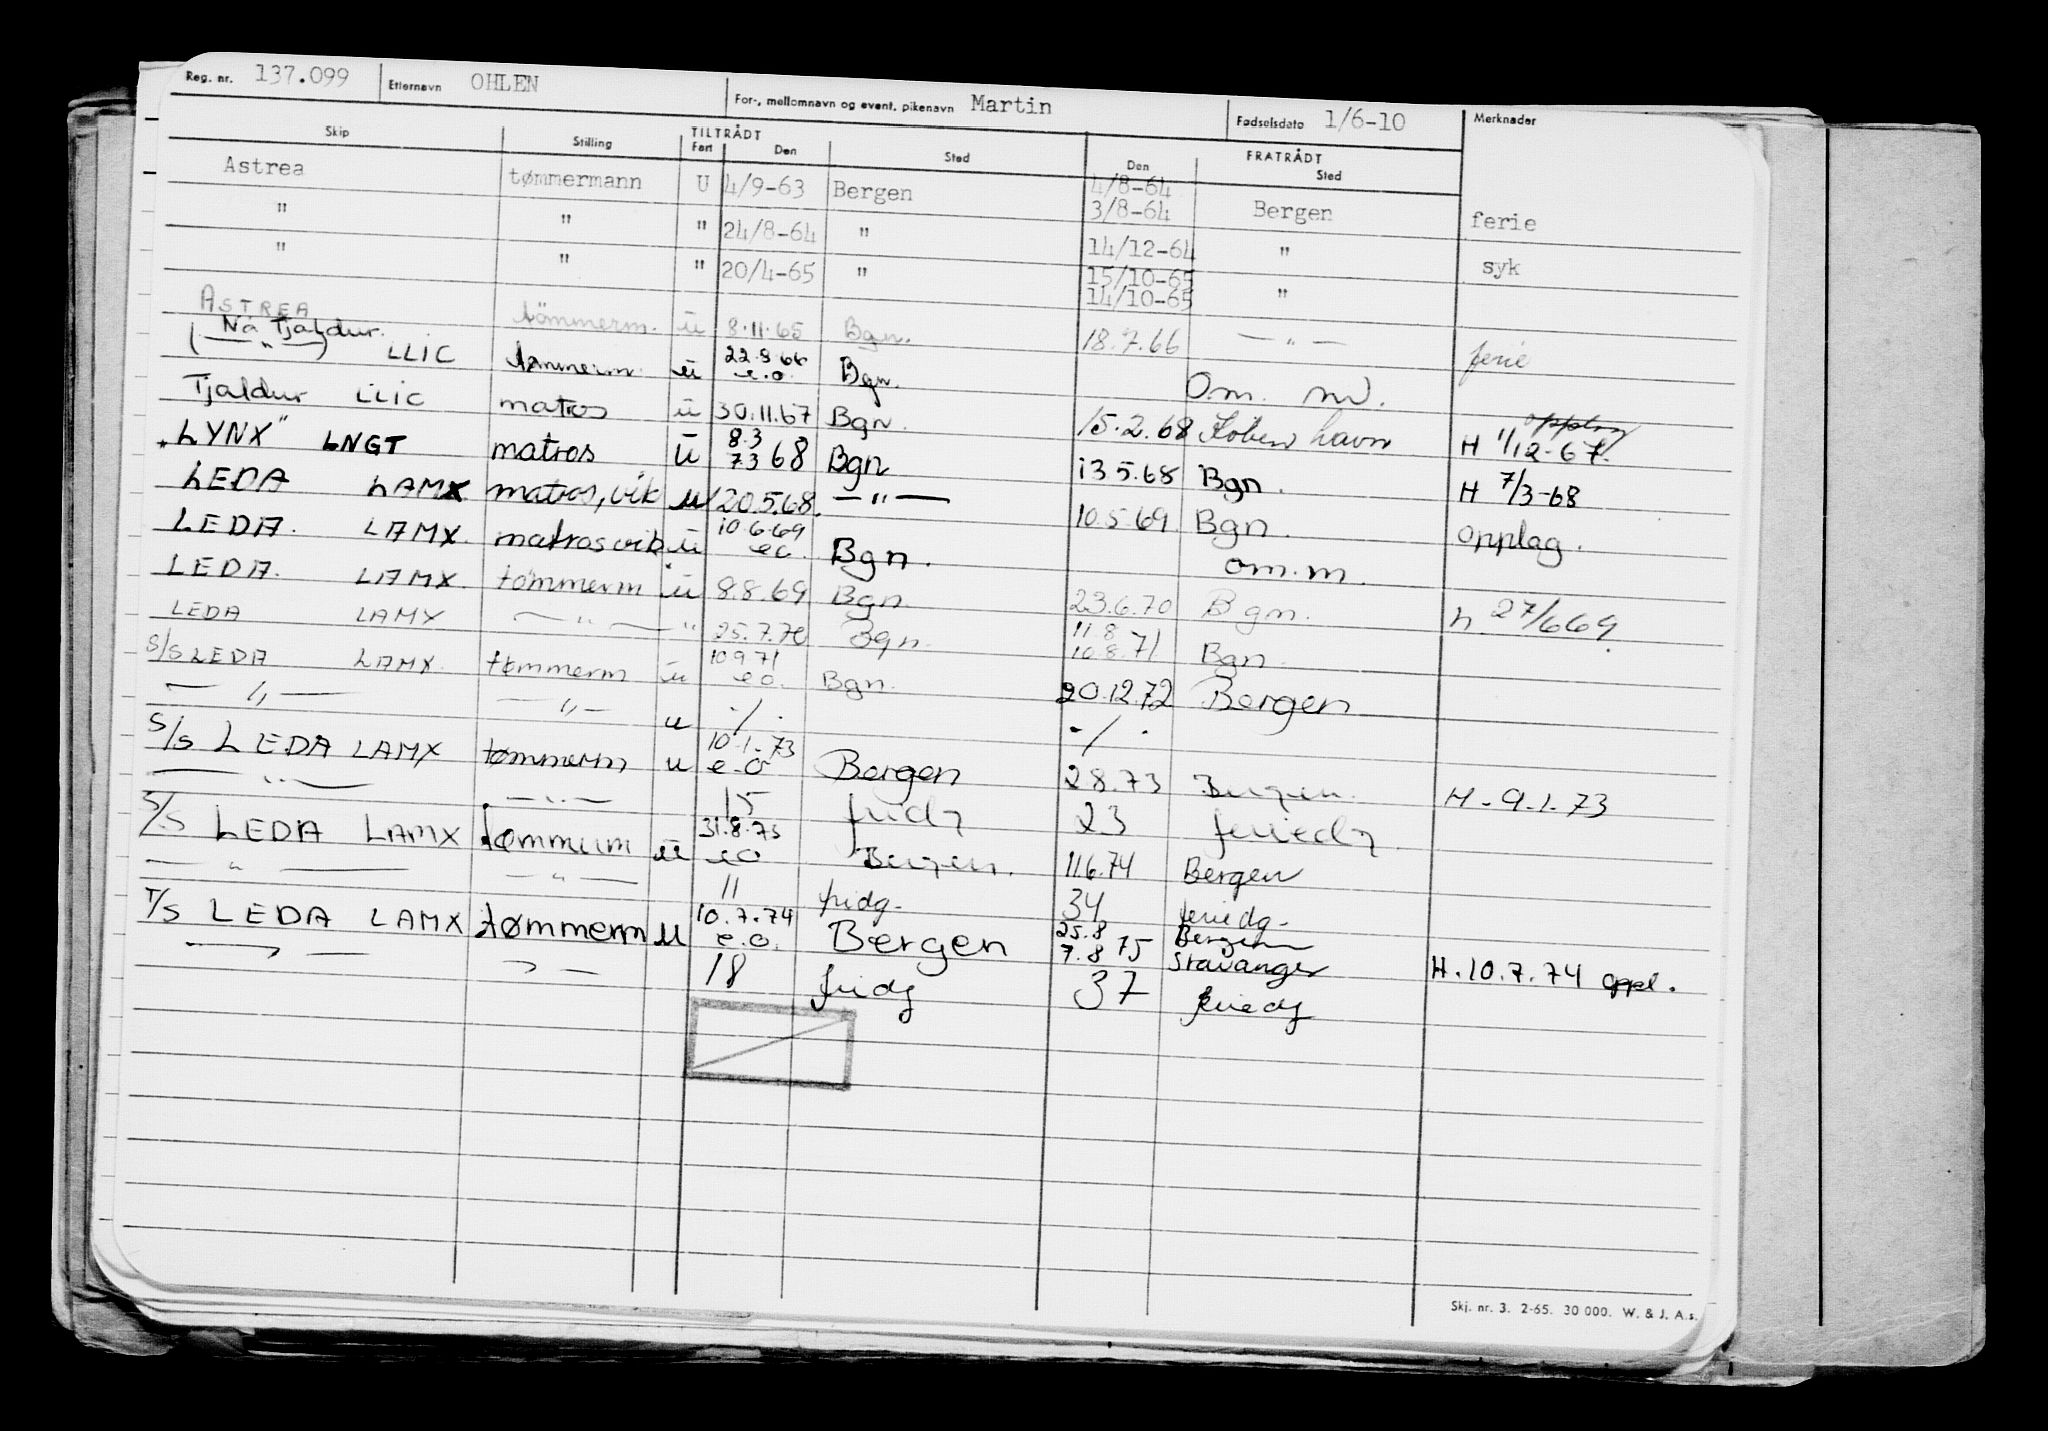 Reg. nr. 137.099 Etternavn OHLEN For-, mellomnavn og event. pikenavn Martin Fødselsdato 1/6-10 Merknader
Skip Stilling TILTRÅDT Fart Den Sted FRATRÅDT Den Sted
Astrea tømmermann U 4/9-63 Bergen 4/8-64
3/8-64 Bergen ferie
" " " 24/8-64 " 14/12-64 " syk
" " " 20/4-65 " 15/10-65
14/10-65 "
ASTREA tömmerm. u 8.11.65 Bgn. 18.7.66 — " — ferie
Nå Tjaldur.
(— " —) LLIC tømmerm. u 22.8.66 e.o. Bgn. Om. m.
Tjaldur LLIC matros u 30.11.67 Bgn. 15.2.68 København H 1/12-67. opplag
"LYNX" LNGT matros u 8.3 7.3 68 Bgn 13.5.68 Bgn. H 7/3-68
LEDA LAMX matros, vik u 20.5.68. — " — 10.5.69. Bgn. opplag.
LEDA. LAMX. matros vik. u 10.6.69 e.o. Bgn. om.m.
LEDA. LAMX. tømmerm u 8.8.69 Bgn 23.6.70 Bgn. h. 27/6 69.
LEDA LAMX — " — " 25.7.70 Bgn. 11.8 10.8.71 Bgn.
S/S LEDA LAMX. tømmerm u 10.9.71 e.o. Bgn. 20.12.72 Bergen
— " — — " — u -/- -/-
S/S LEDA LAMX tømmerm u 10.1.73 e.o Bergen 28.73 Bergen. H. 9.1.73
— " — — " — 15 fridg 23 feriedg
S/S LEDA LAMX tømmerm u 31.8.73 e.o Bergen. 11.6.74 Bergen
— " — — " — 11 fridg. 34 feriedg.
T/S LEDA LAMX tømmerm u 10.7.74 e.o. Bergen 25.8 7.8 75 Bergen Stavanger H. 10.7.74 oppl.
— " — — " — 18 fridg 37 feriedg
Skj. nr. 3. 2-65. 30 000. W. & J. A.s.